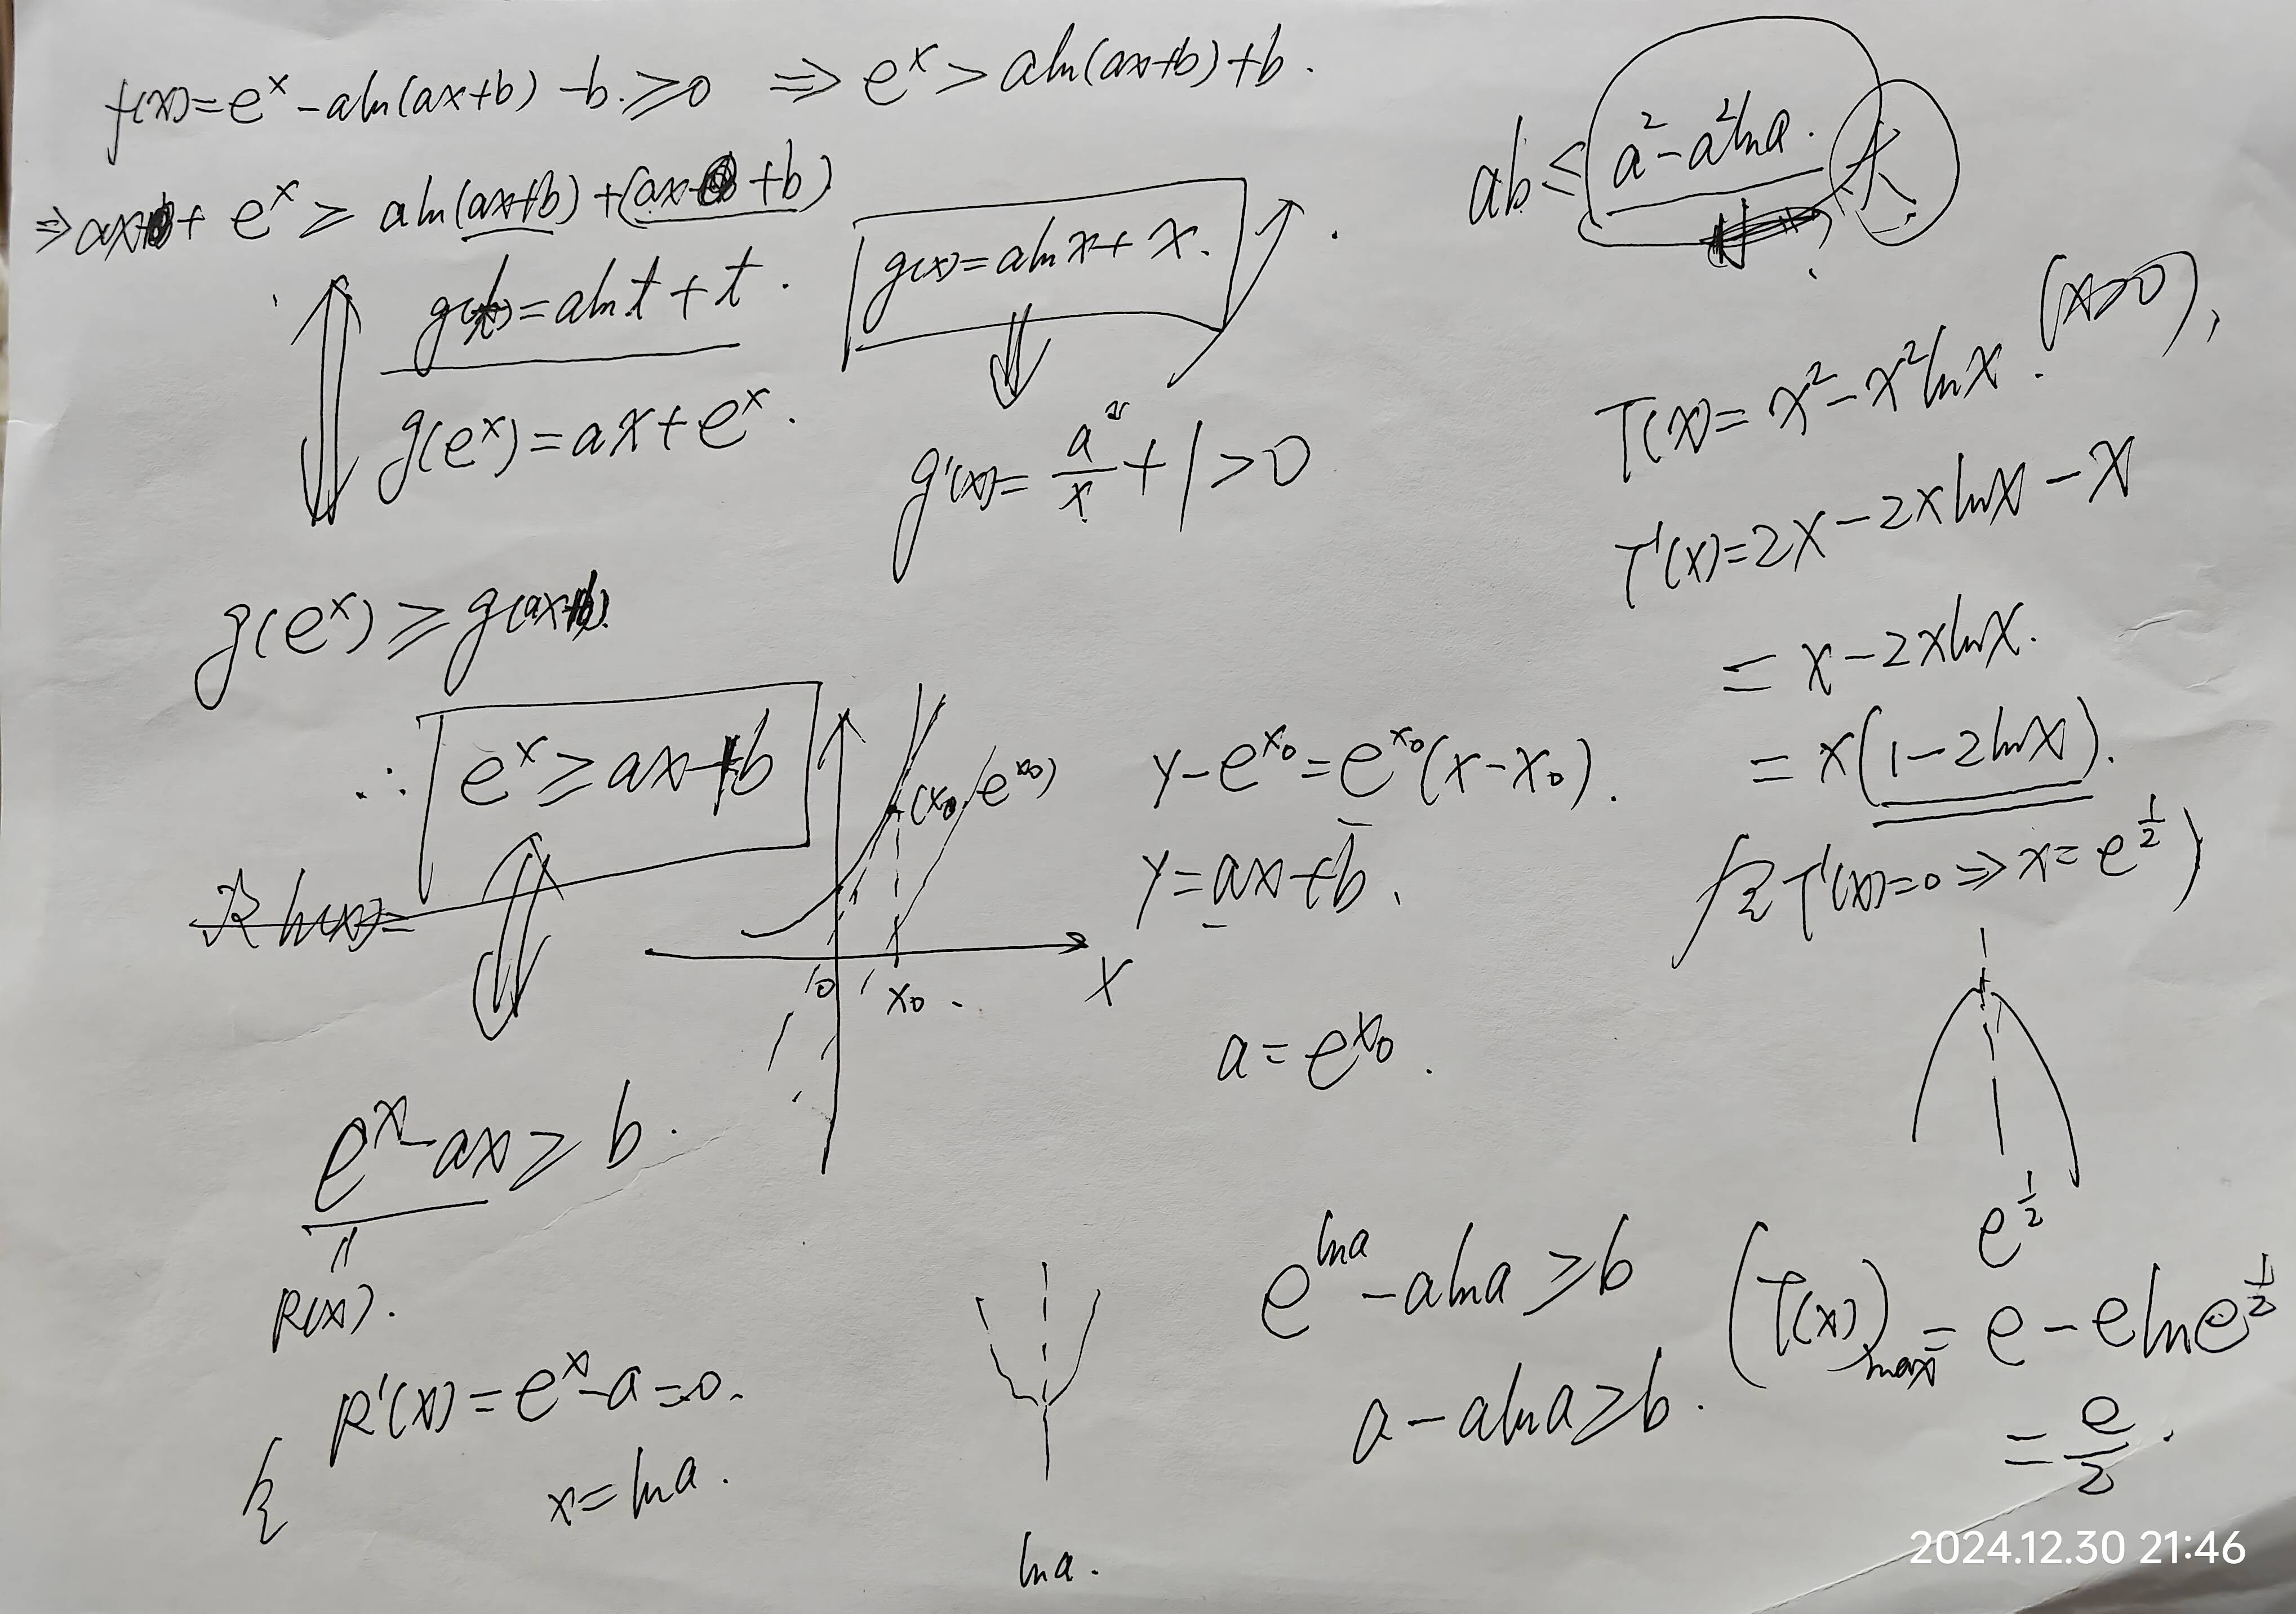 f(x)=e^x-aln(ax+b)-b.≥0 ⇒ e^x>aln(ax+b)+b.
⇒ax+e^x≥aln(ax+b)+(ax+b)
g(t)=alnt+t.
g(x)=alnx+x.
g(e^x)=ax+e^x.
g'(x)=a/x+1>0
g(e^x)≥g(ax+b).
∴ e^x≥ax+b
h(x)=
(x₀,e^x₀)
0
x₀.
X
y-e^x₀=e^x₀(x-x₀).
y=ax+b.
a=e^x₀.
e^x-ax≥b.
R(x).
令 R'(x)=e^x-a=0.
x=lna.
lna.
e^lna-alna≥b
a-alna≥b.
ab≤a²-a²lna. 大
?
T(x)=x²-x²lnx.(x>0),
T'(x)=2x-2xlnx-x
=x-2xlnx.
=x(1-2lnx).
令T'(x)=0⇒x=e^½)
e^½
(T(x))max=e-elne^½
=e/2.
2024.12.30 21:46